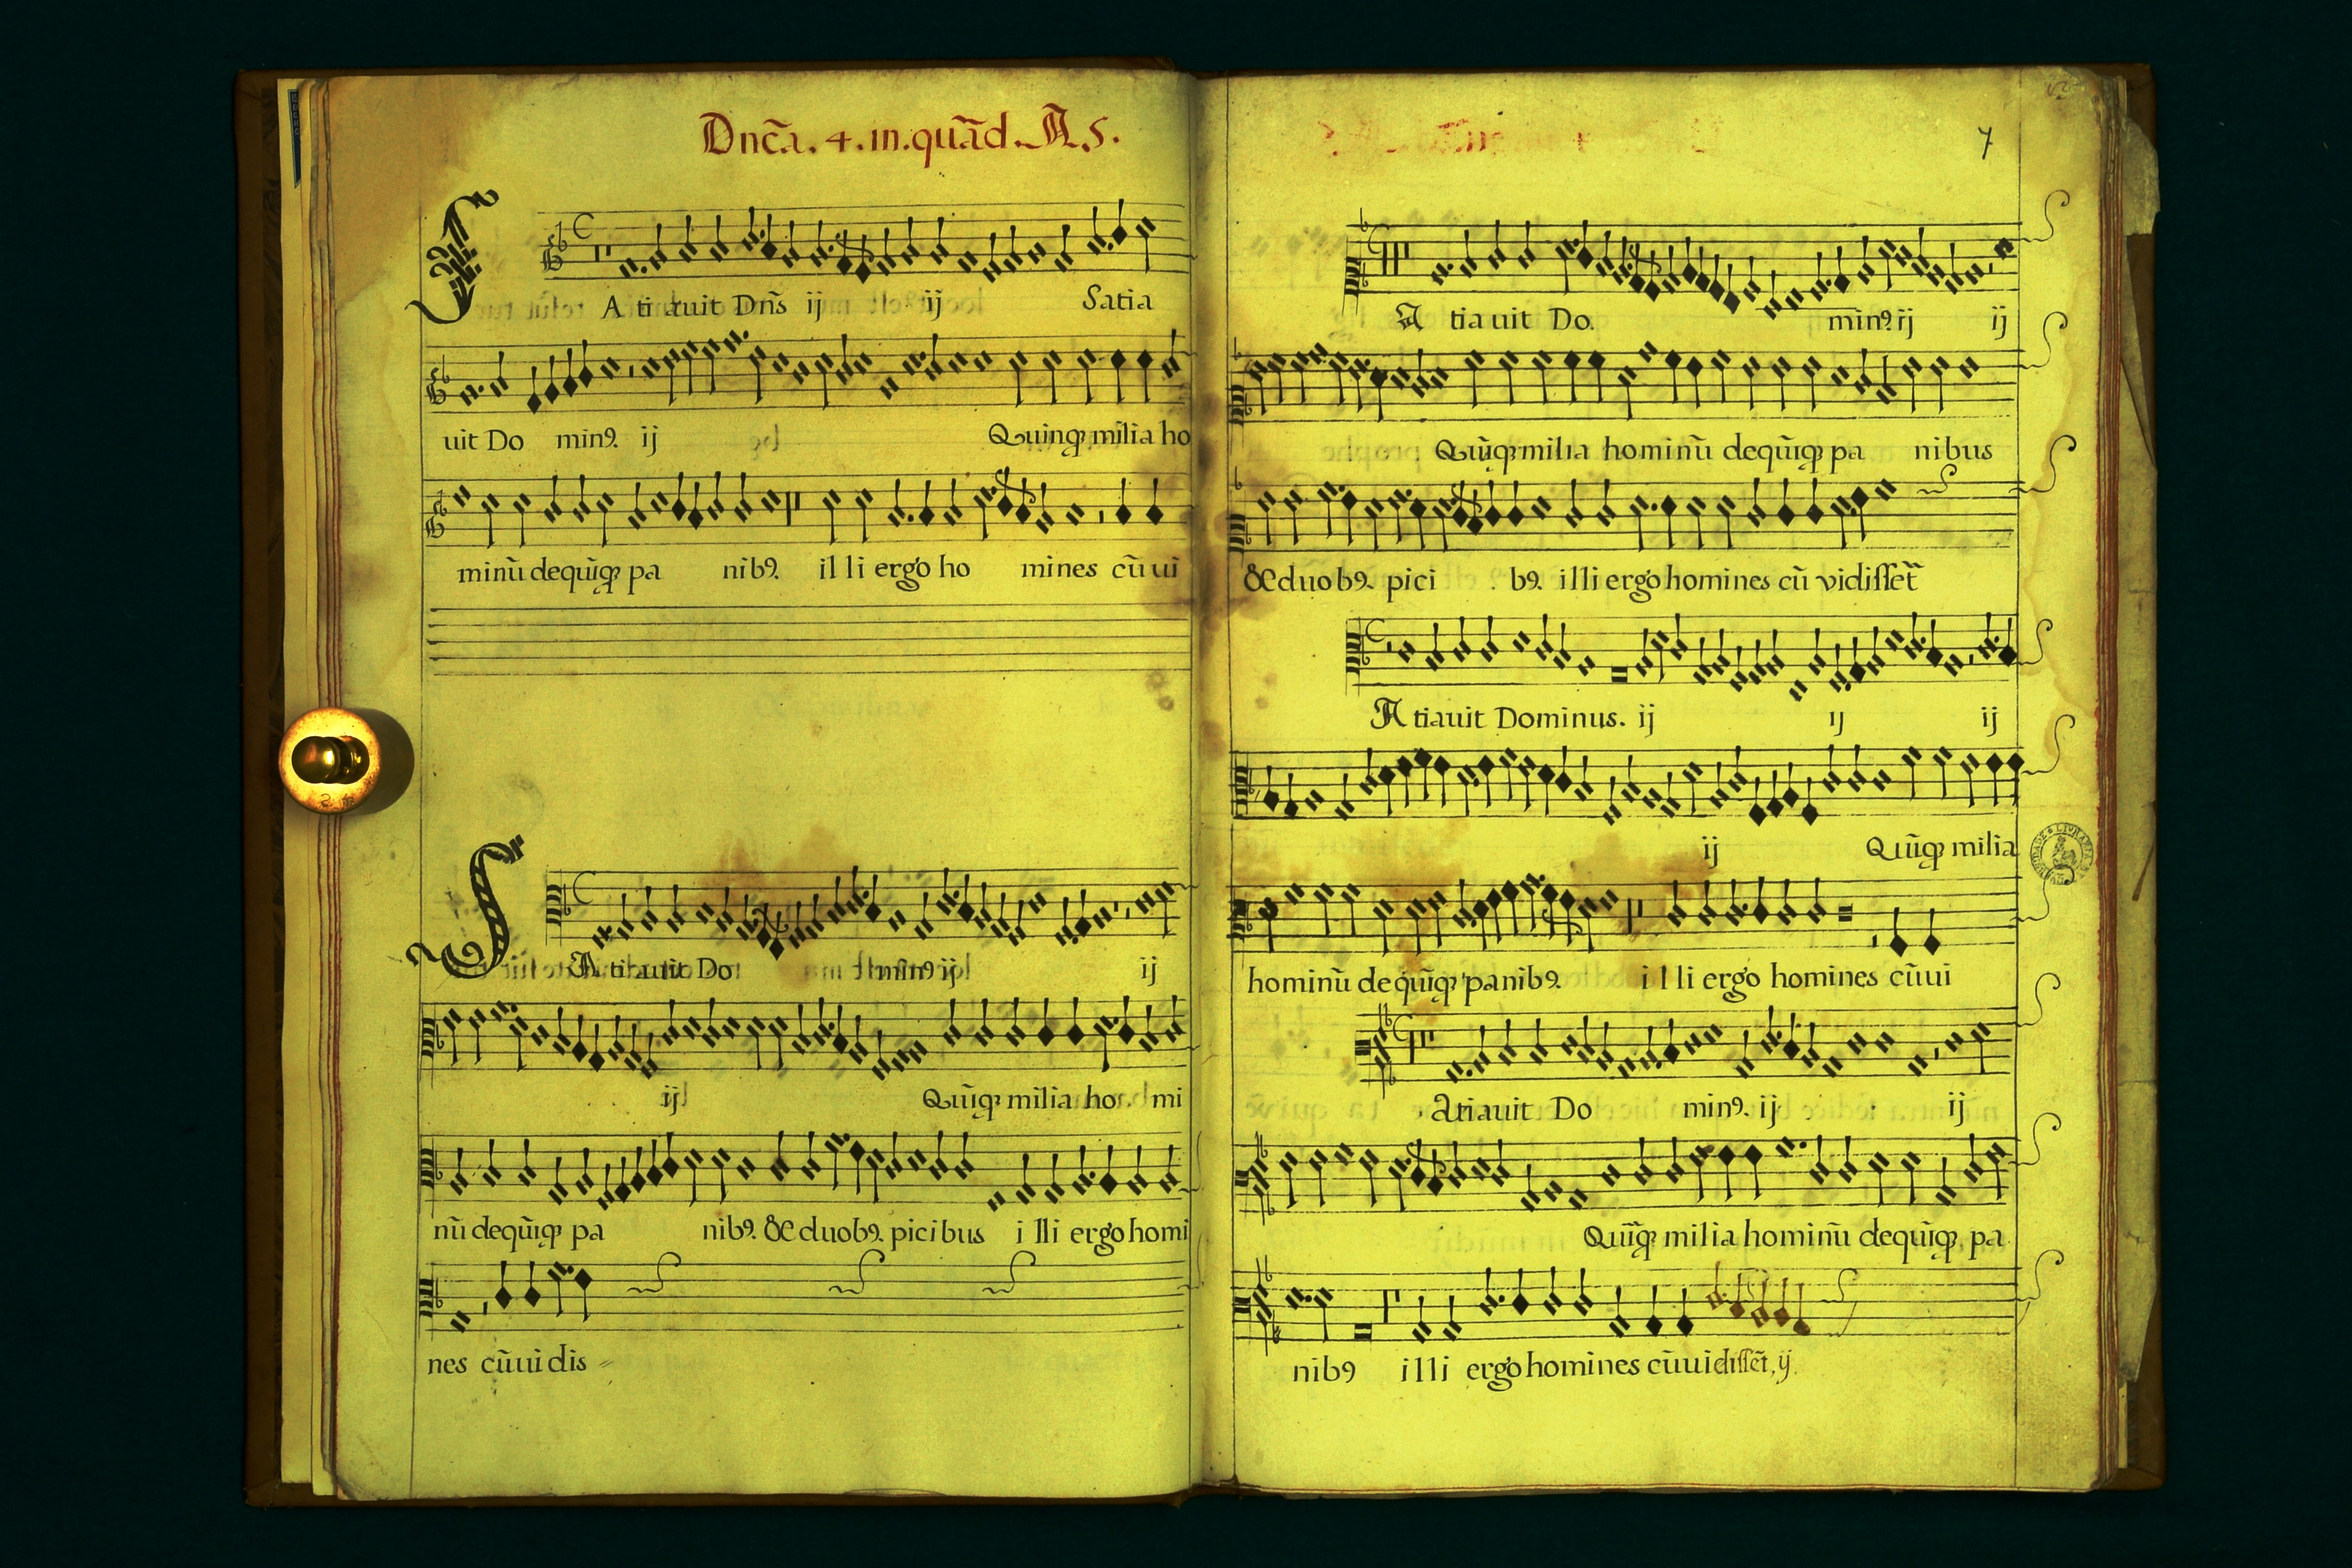 Dnc̃a. 4. in. quãd. A. 5.
S A ti auit Dñs ij ij Satia
uit Do minꝰ. ij Quinqꝫ milia ho
minũ dequĩqꝫ pa nibꝰ. il li ergo ho mines cũ ui
S A ti auit Do minꝰ ij ij
ij Quĩqꝫ milia ho mi
nũ dequĩqꝫ pa nibꝰ. & duobꝰ. picibus i lli ergo homi
nes cũ ui dis
7
A tia uit Do. minꝰ. ij ij
Quĩqꝫ milia hominũ dequĩqꝫ pa nibus
& duobꝰ. pici bꝰ. illi ergo homines cũ vidisset̃
A tiauit Dominus. ij ij ij
ij Quĩqꝫ milia
hominũ de quĩqꝫ panibꝰ. i l li ergo homines cũ ui
Atiauit Do minꝰ. ij ij
Quĩqꝫ milia hominũ dequĩqꝫ pa
nibꝰ illi ergo homines cũ uidissẽt, ij